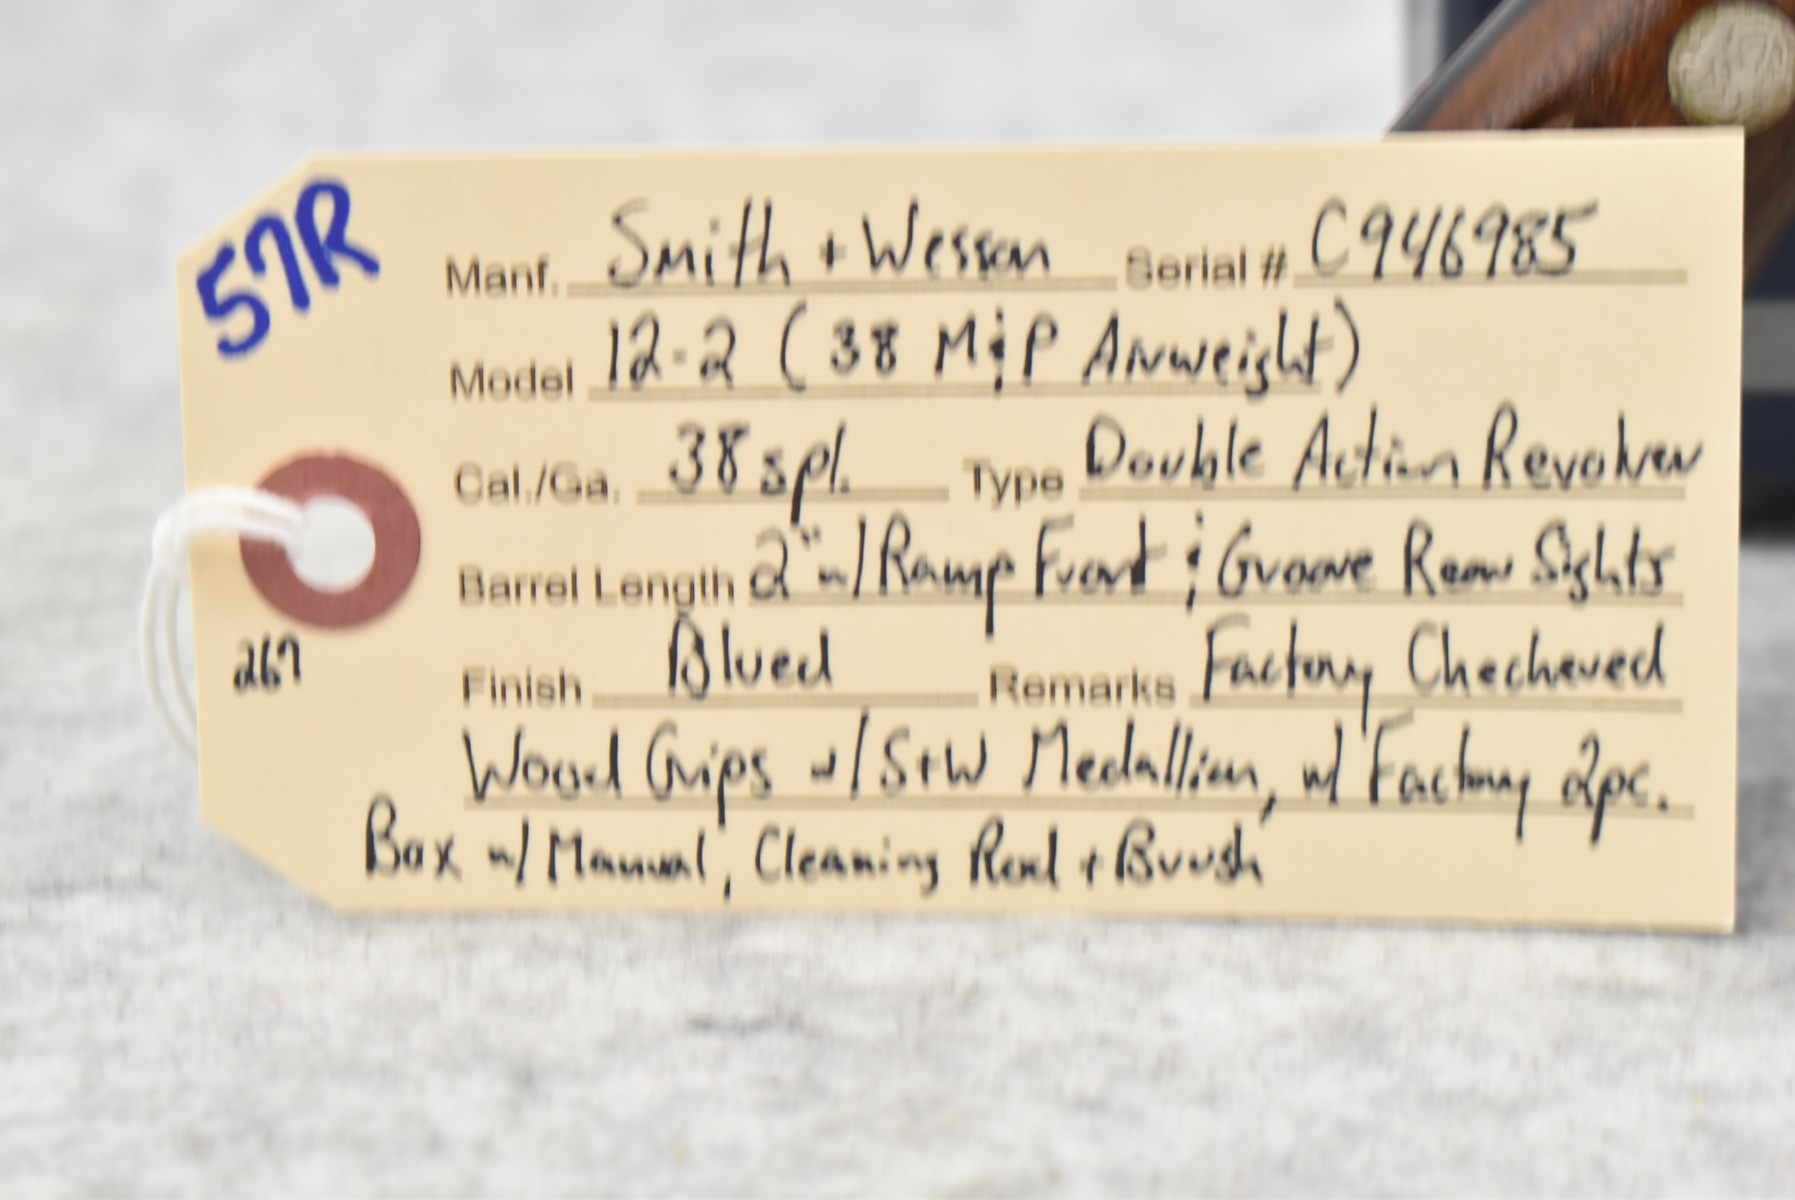 57R
Manf. Smith + Wesson Serial # C946985
Model 12-2 (38 M&P Airweight)
Cal./Ga. 38 spl. Type Double Action Revolver
Barrel Length 2" w/ Ramp Front & Groove Rear Sights
267
Finish Blued Remarks Factory Checkered
Wood Grips w/ S+W Medallion, w/ Factory 2pc.
Box w/ Manual, Cleaning Rod + Brush